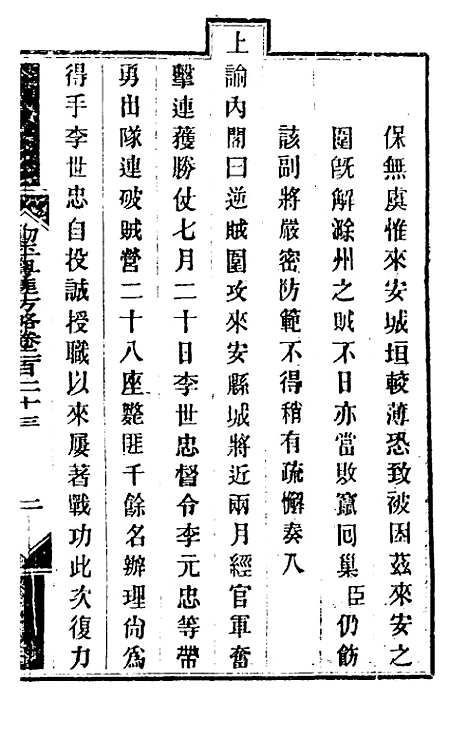 保無虞惟來安城垣較薄恐致被困茲來安之
圍旣解滁州之賊不日亦當敗竄囘巢臣仍飭
該副將嚴密防範不得稍有疏懈奏入
上諭內閣曰逆賊圍攻來安縣城將近兩月經官軍奮
擊連獲勝仗七月二十日李世忠督令李元忠等帶
勇出隊連破賊營二十八座斃匪千餘名辦理尙爲
得手李世忠自投誠授職以來屢著戰功此次復力
方略卷二百二十三
二